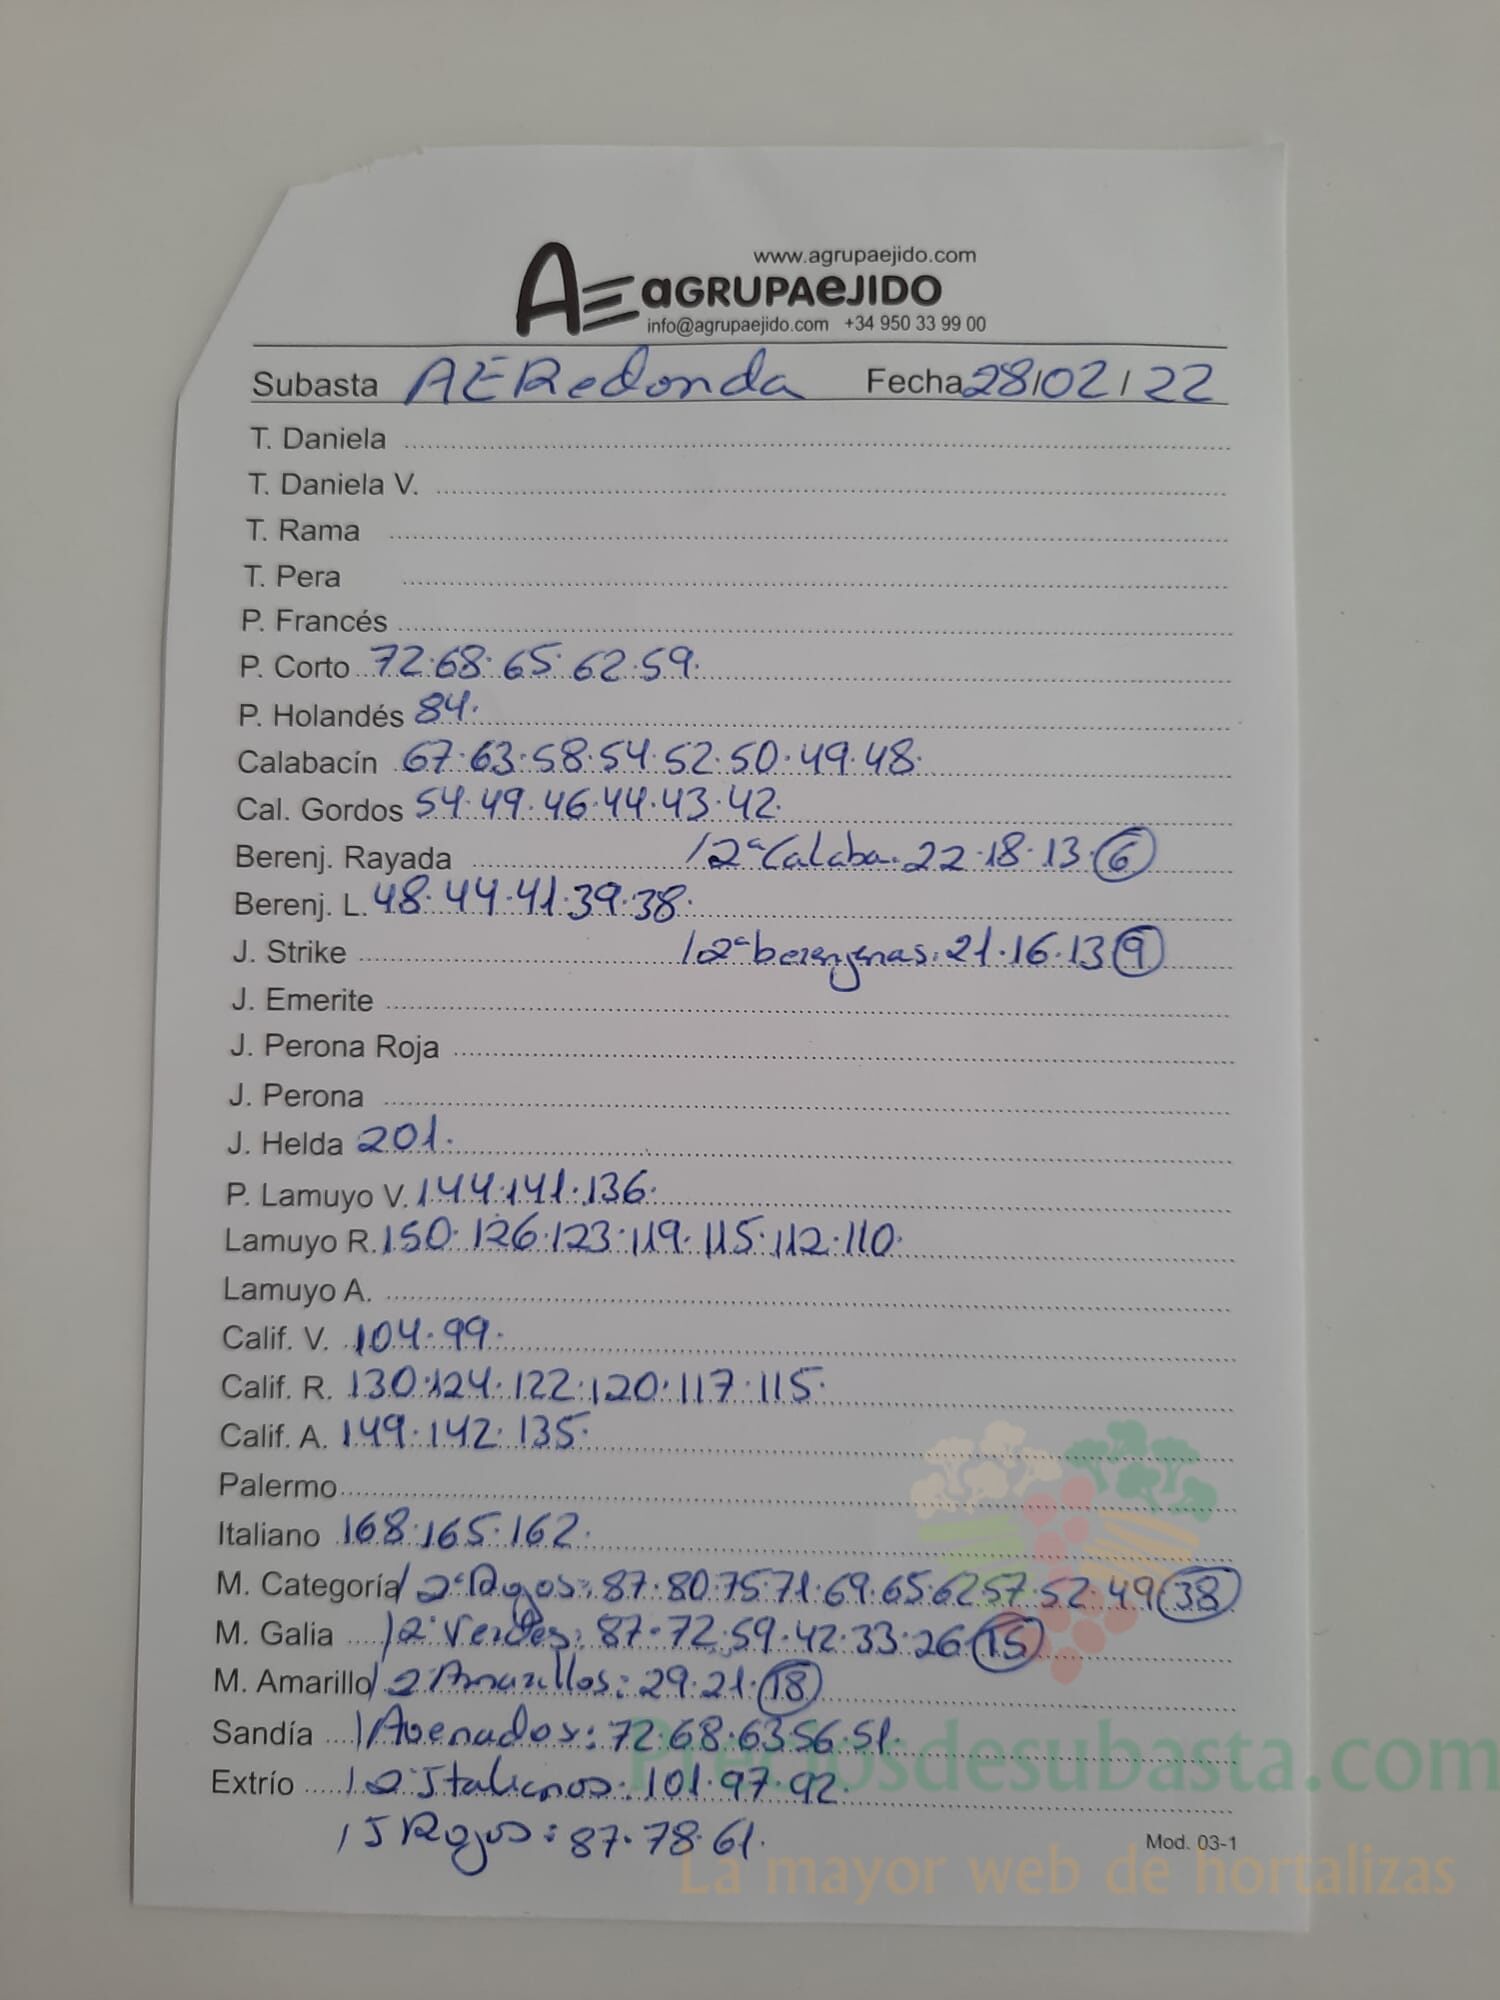 www.agrupaejido.com
AE aGRUPAeJIDO
info@agrupaejido.com +34 950 33 99 00
Subasta AERedonda Fecha 28/02/22
T. Daniela
T. Daniela V.
T. Rama
T. Pera
P. Francés
P. Corto 72.68.65.62.59.
P. Holandés 84.
Calabacín 67.63.58.54.52.50.49.48.
Cal. Gordos 54.49.46.44.43.42.
Berenj. Rayada /2ª Calaba. 22.18.13.6
Berenj. L. 48.44.41.39.38.
J. Strike /2ª berenjenas. 21.16.13 9
J. Emerite
J. Perona Roja
J. Perona
J. Helda 201.
P. Lamuyo V. 144.141.136.
Lamuyo R. 150.126.123.119.115.112.110.
Lamuyo A.
Calif. V. 104.99.
Calif. R. 130.124.122.120.117.115.
Calif. A. 149.142.135.
Palermo
Italiano 168.165.162.
M. Categoría / 2ª Rojos: 87.80.75.71.69.65.62.57.52.49 38
M. Galia / 2ª Verdes: 87.72.59.42.33.26.15
M. Amarillo / 2 Amarillos: 29.21.18
Sandía / Asenados: 72.68.63.56.51.
Extrío / 2ª Italianos: 101.97.92.
/ J Rojos: 87.78.61.
Mod. 03-1
Preciosdesubasta.com
La mayor web de hortalizas